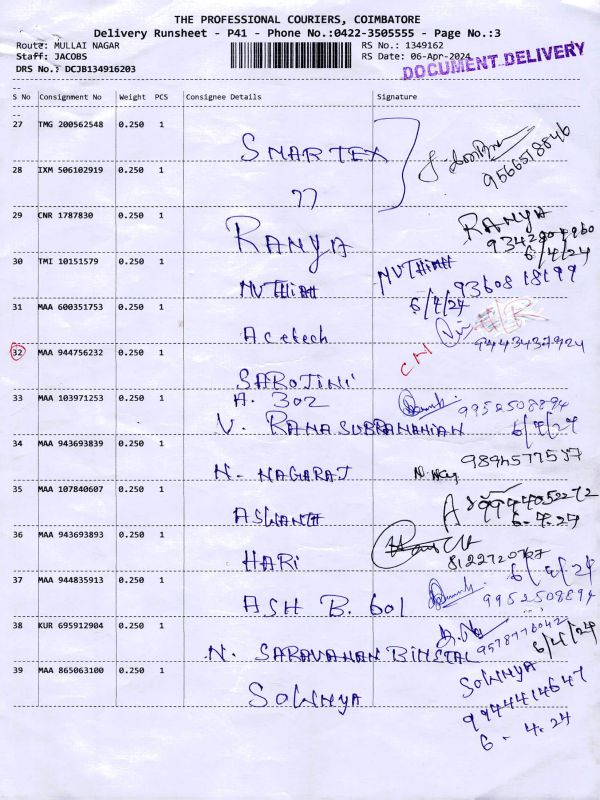 THE PROFESSIONAL COURIERS, COIMBATORE
Delivery Runsheet - P41 - Phone No.:0422-3505555 - Page No.:3
Route: MULLAI NAGAR RS No.: 1349162
Staff: JACOBS RS Date: 06-Apr-2024
DOCUMENT DELIVERY
DRS No.: DCJB134916203
S No Consignment No Weight PCS Consignee Details Signature
27 TMG 200562548 0.250 1
SMARTEX
9566518846
28 IXM 506102919 0.250 1
77
29 CNR 1787830 0.250 1
RANYA RANYA
9342804960
6/4/24
30 TMI 10151579 0.250 1
MUTHIAH MUTHIAH
93608 18199
6/4/24
31 MAA 600351753 0.250 1
Acetech
9443437924
32 MAA 944756232 0.250 1
SAROJINI
33 MAA 103971253 0.250 1
A. 302
9952508894
V. RAMASUBRAMANIAN 6/4/24
34 MAA 943693839 0.250 1
N. NAGARAJ
9894577537
35 MAA 107840607 0.250 1
ASWANTH
9994052272
6.4.24
36 MAA 943693893 0.250 1
HARI
8122720767
6/4/24
37 MAA 944835913 0.250 1
ASH B. 601
9952508894
38 KUR 695912904 0.250 1
N. SARAVANAN BINSTAL
9578776042
6/4/24
39 MAA 865063100 0.250 1
SOWMYA SOWMYA
9944414647
6.4.24